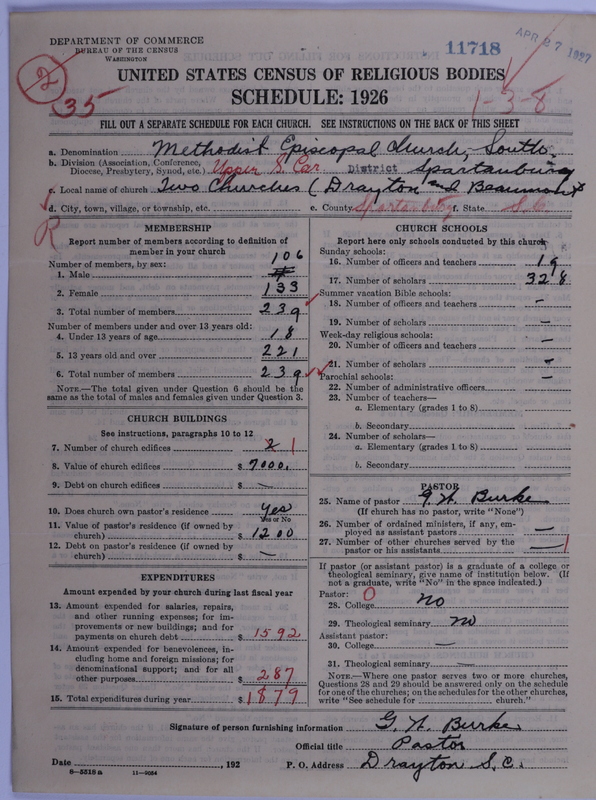 DEPARTMENT OF COMMERCE
BUREAU OF THE CENSUS
WASHINGTON
11718
APR 27 1927
2
35
1-3-8
UNITED STATES CENSUS OF RELIGIOUS BODIES
SCHEDULE: 1926
FILL OUT A SEPARATE SCHEDULE FOR EACH CHURCH. SEE INSTRUCTIONS ON THE BACK OF THIS SHEET
a. Denomination Methodist Episcopal Church, South.
b. Division (Association, Conference, Diocese, Presbytery, Synod, etc.) Upper S. Car District Spartanburg
c. Local name of church Two Churches (Drayton and Beaumont
d. City, town, village, or township, etc. e. County Spartanburg f. State S.C.
R
MEMBERSHIP
Report number of members according to definition of
member in your church
Number of members, by sex:
1. Male 106
2. Female 133
3. Total number of members 239
Number of members under and over 13 years old:
4. Under 13 years of age 18
5. 13 years old and over 221
6. Total number of members 239
NOTE.—The total given under Question 6 should be the
same as the total of males and females given under Question 3.
CHURCH BUILDINGS
See instructions, paragraphs 10 to 12
7. Number of church edifices 2 1
8. Value of church edifices $ 7000.
9. Debt on church edifices $ —
10. Does church own pastor's residence? Yes
Yes or No
11. Value of pastor's residence (if owned by
church) $ 1200
12. Debt on pastor's residence (if owned by
church) $ —
EXPENDITURES
Amount expended by your church during last fiscal year
13. Amount expended for salaries, repairs,
and other running expenses; for im-
provements or new buildings; and for
payments on church debt $ 1592
14. Amount expended for benevolences, in-
cluding home and foreign missions; for
denominational support; and for all
other purposes $ 287
15. Total expenditures during year $ 1879
CHURCH SCHOOLS
Report here only schools conducted by this church
Sunday schools:
16. Number of officers and teachers 19
17. Number of scholars 328
Summer vacation Bible schools:
18. Number of officers and teachers —
19. Number of scholars —
Week-day religious schools:
20. Number of officers and teachers —
21. Number of scholars —
Parochial schools: —
22. Number of administrative officers
23. Number of teachers—
a. Elementary (grades 1 to 8)
b. Secondary
24. Number of scholars—
a. Elementary (grades 1 to 8)
b. Secondary
PASTOR
25. Name of pastor G. N. Burke
(If church has no pastor, write "None")
26. Number of ordained ministers, if any, em-
ployed as assistant pastors —
27. Number of other churches served by the
pastor or his assistants — 1
If pastor (or assistant pastor) is a graduate of a college or
theological seminary, give name of institution below. (If
not a graduate, write "No" in the space indicated.)
Pastor: 0
28. College No
29. Theological seminary No
Assistant pastor:
30. College —
31. Theological seminary —
NOTE.—Where one pastor serves two or more churches,
Questions 28 and 29 should be answered only on the schedule
for one of the churches; on the schedules for the other churches,
write "See schedule for church."
Signature of person furnishing information G. N. Burke
Official title Pastor
Date , 192 P. O. Address Drayton S.C.
8—5518a 11—9054